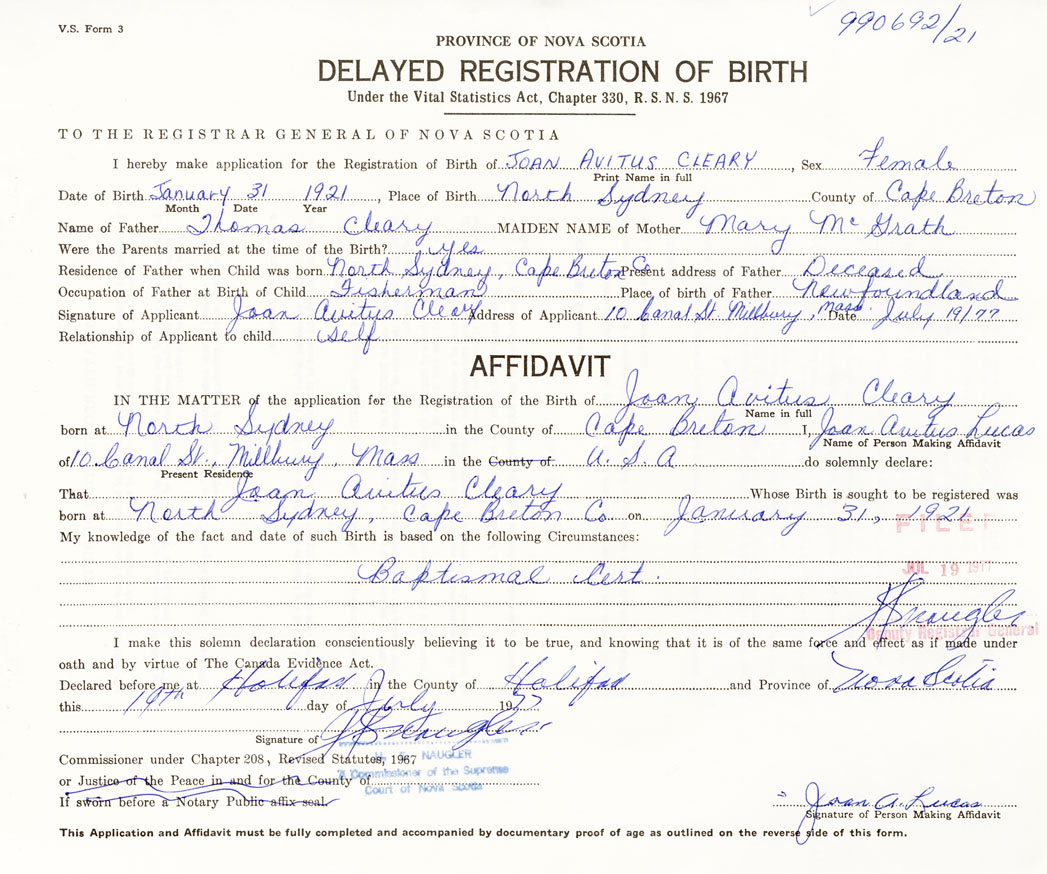 V.S. Form 3
990692/21
PROVINCE OF NOVA SCOTIA
DELAYED REGISTRATION OF BIRTH
Under the Vital Statistics Act, Chapter 330, R. S. N. S. 1967
TO THE REGISTRAR GENERAL OF NOVA SCOTIA
I hereby make application for the Registration of Birth of JOAN AVITUS CLEARY, Sex Female
Print Name in full
Date of Birth January 31 1921, Place of Birth North Sydney County of Cape Breton
Month Date Year
Name of Father Thomas Cleary MAIDEN NAME of Mother Mary McGrath
Were the Parents married at the time of the Birth? yes
Residence of Father when Child was born North Sydney, Cape Breton Co Present address of Father Deceased
Occupation of Father at Birth of Child Fisherman Place of birth of Father Newfoundland
Signature of Applicant Joan Avitus Cleary Address of Applicant 10 Canal St. Millbury, Mass. Date July 19/77
Relationship of Applicant to child self
AFFIDAVIT
IN THE MATTER of the application for the Registration of the Birth of Joan Avitus Cleary
Name in full
born at North Sydney in the County of Cape Breton I, Joan Avitus Lucas
Name of Person Making Affidavit
of 10 Canal St., Millbury, Mass in the County of U.S.A do solemnly declare:
Present Residence
That Joan Avitus Cleary Whose Birth is sought to be registered was
born at North Sydney, Cape Breton Co on January 31, 1921
FILED
My knowledge of the fact and date of such Birth is based on the following Circumstances:
Baptismal Cert.
JUL 19 1977
Naugler
Deputy Registrar General
I make this solemn declaration conscientiously believing it to be true, and knowing that it is of the same force and effect as if made under
oath and by virtue of The Canada Evidence Act.
Declared before me at Halifax in the County of Halifax and Province of Nova Scotia
this 19th day of July 1977
Signature of Naugler
Commissioner under Chapter 208, Revised Statutes, 1967
NAUGLER
A Commissioner of the Supreme
Court of Nova Scotia
or Justice of the Peace in and for the County of
If sworn before a Notary Public affix seal.
Joan A. Lucas
Signature of Person Making Affidavit
This Application and Affidavit must be fully completed and accompanied by documentary proof of age as outlined on the reverse side of this form.